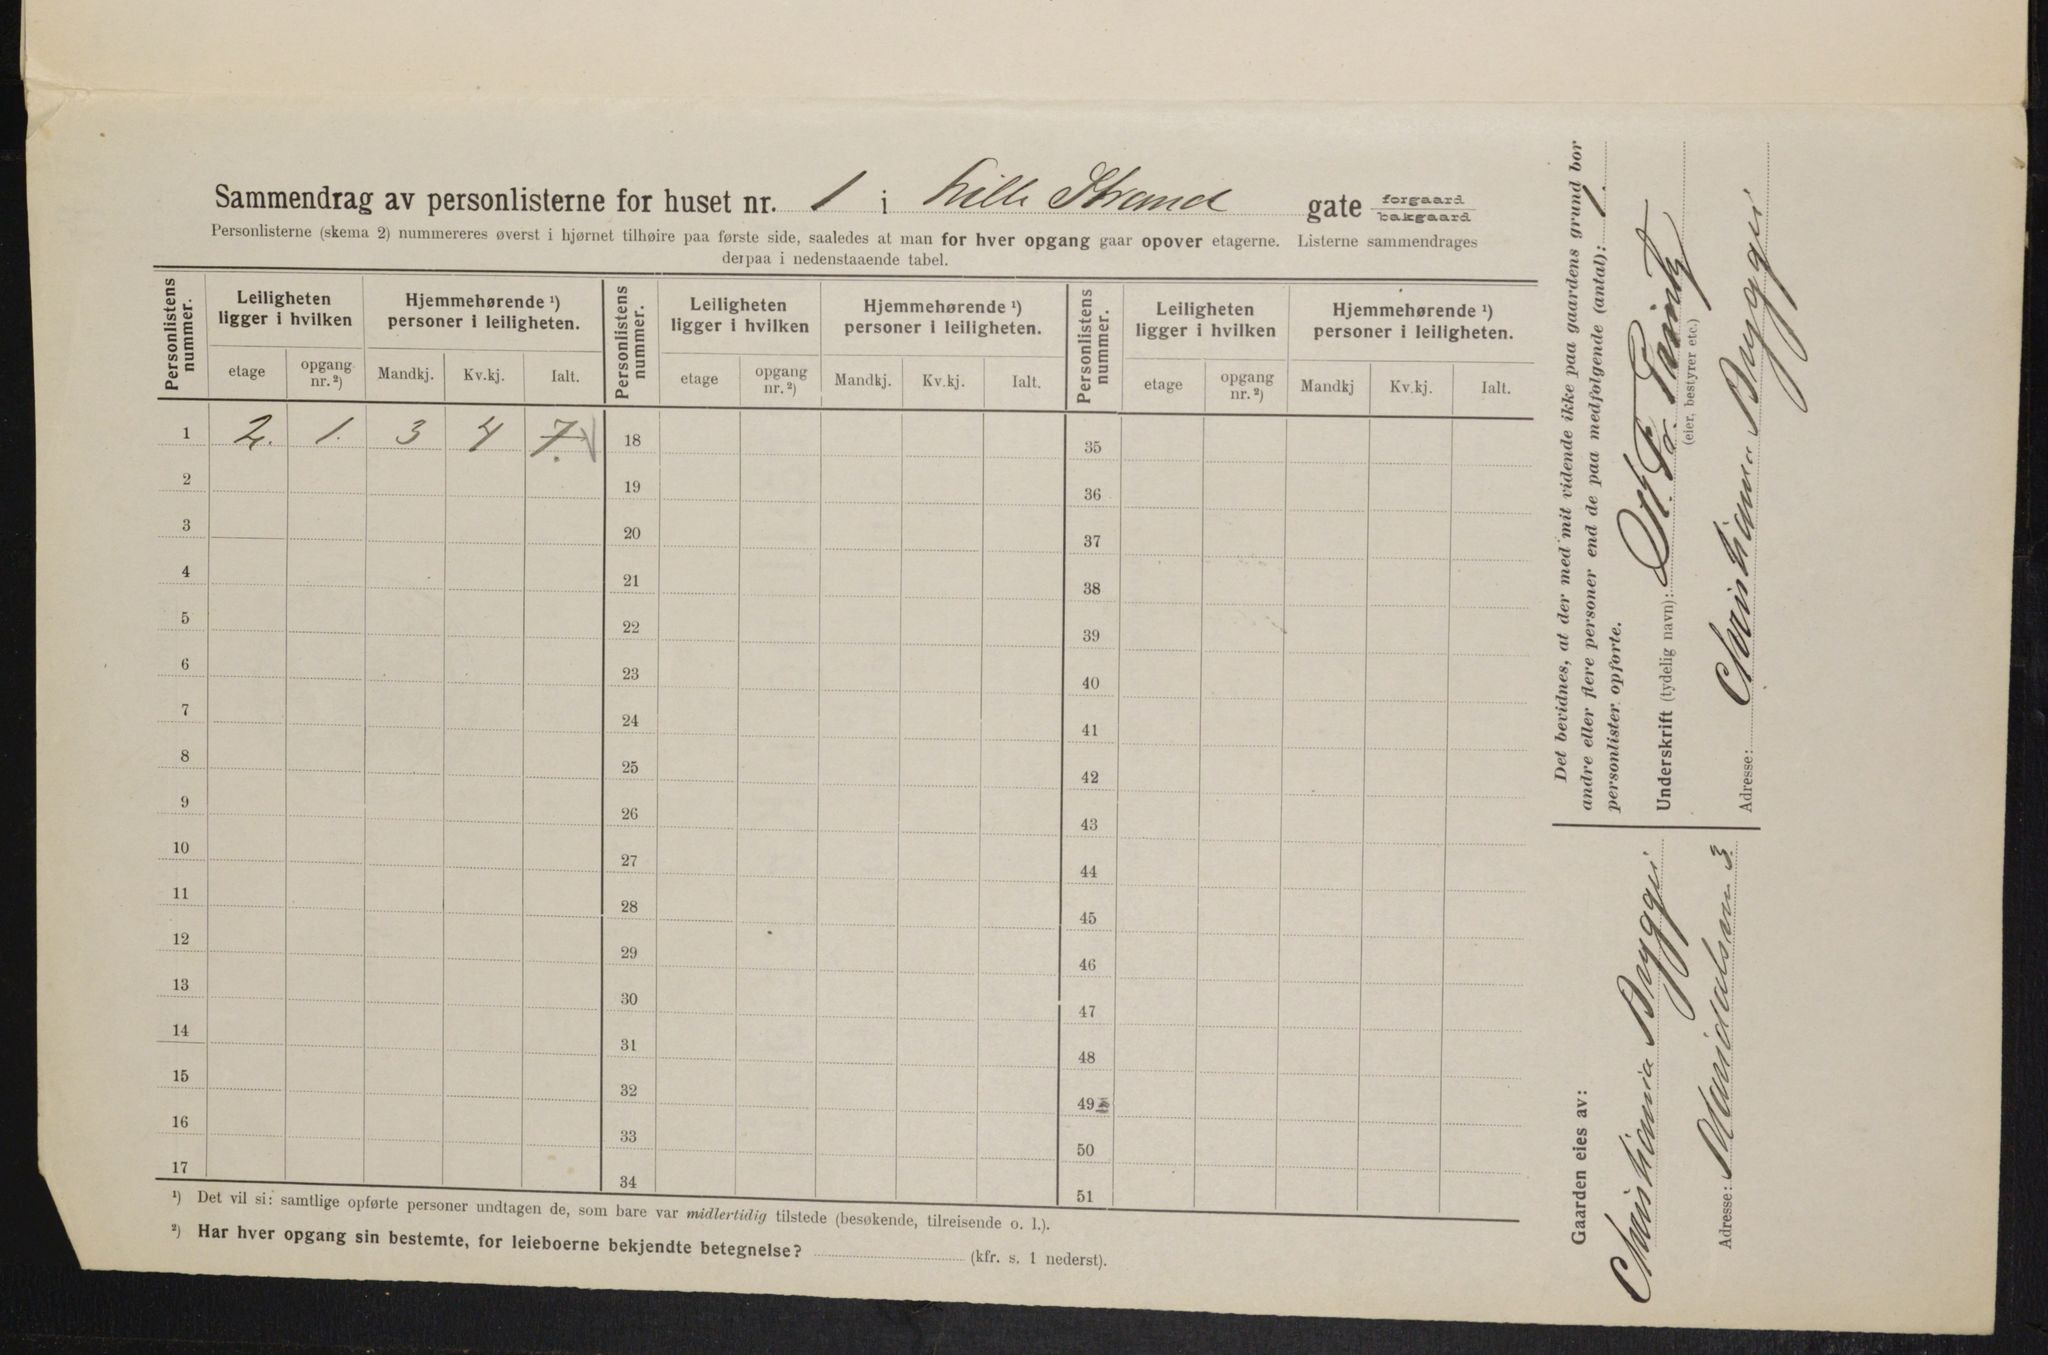 Sammendrag av personlisterne for huset nr. 1 i Lille Strand gate forgaard bakgaard
Personlisterne (skema 2) nummereres øverst i hjørnet tilhøire paa første side, saaledes at man for hver opgang gaar opover etagerne. Listerne sammendrages
derpaa i nedenstaaende tabel.
Personlistens nummer. Leiligheten ligger i hvilken Hjemmehørende ¹) personer i leiligheten. Personlistens nummer. Leiligheten ligger i hvilken Hjemmehørende ¹) personer i leiligheten. Personlistens nummer. Leiligheten ligger i hvilken Hjemmehørende ¹) personer i leiligheten.
etage opgang nr. ²) Mandkj. Kv.kj. Ialt. etage opgang nr. ²) Mandkj. Kv.kj. Ialt. etage opgang nr. ²) Mandkj Kv.kj. Ialt.
1 2. 1. 3 4 7. 18 35
2 19 36
3 20 37
4 21 38
5 22 39
6 23 40
7 24 41
8 25 42
9 26 43
10 27 44
11 28 45
12 29 46
13 30 47
14 31 48
15 32 49
16 33 50
17 34 51
¹) Det vil si: samtlige opførte personer undtagen de, som bare var midlertidig tilstede (besøkende, tilreisende o. l.).
²) Har hver opgang sin bestemte, for leieboerne bekjendte betegnelse? (kfr. s. 1 nederst).
Det bevidnes, at der med mit vidende ikke paa gaardens grund bor
andre eller flere personer end de paa medfølgende (antal): 1.
personlister opførte.
Underskrift (tydelig navn):
(eier, bestyrer etc.)
Adresse: Christiania Bryggeri
Gaarden eies av:
Christiania Bryggeri
Adresse: Maridalsvn 3.